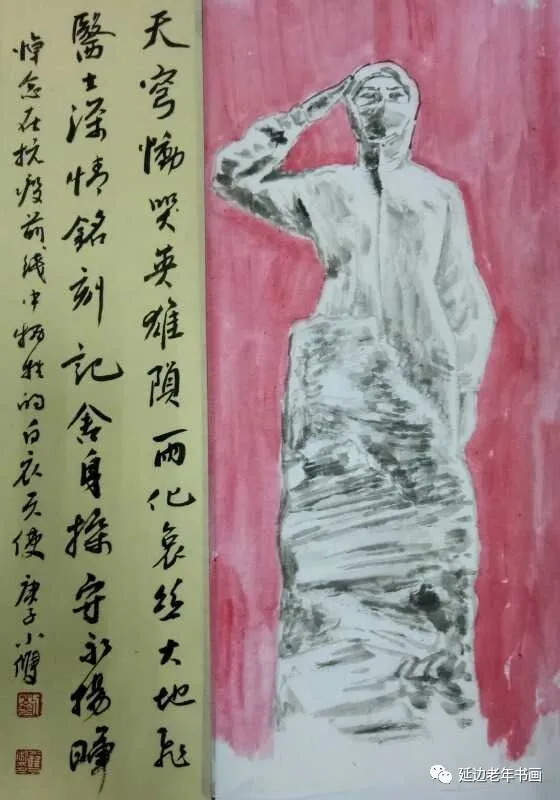 天穹慟哭英雄隕雨化哀丝大地飛
醫士深情銘刻記舍身操守永揚暉
悼念在抗疫前线中牺牲的白衣天使 庚子小雙
延边老年书画